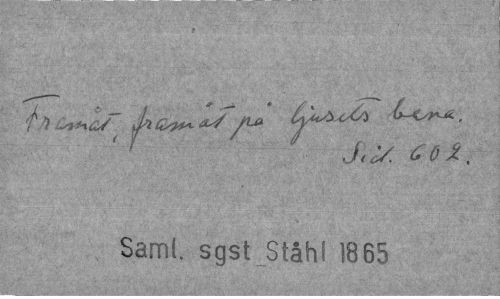 Framåt, framåt på ljusets bana.
Sid. 602.
Saml. sgst Ståhl 1865